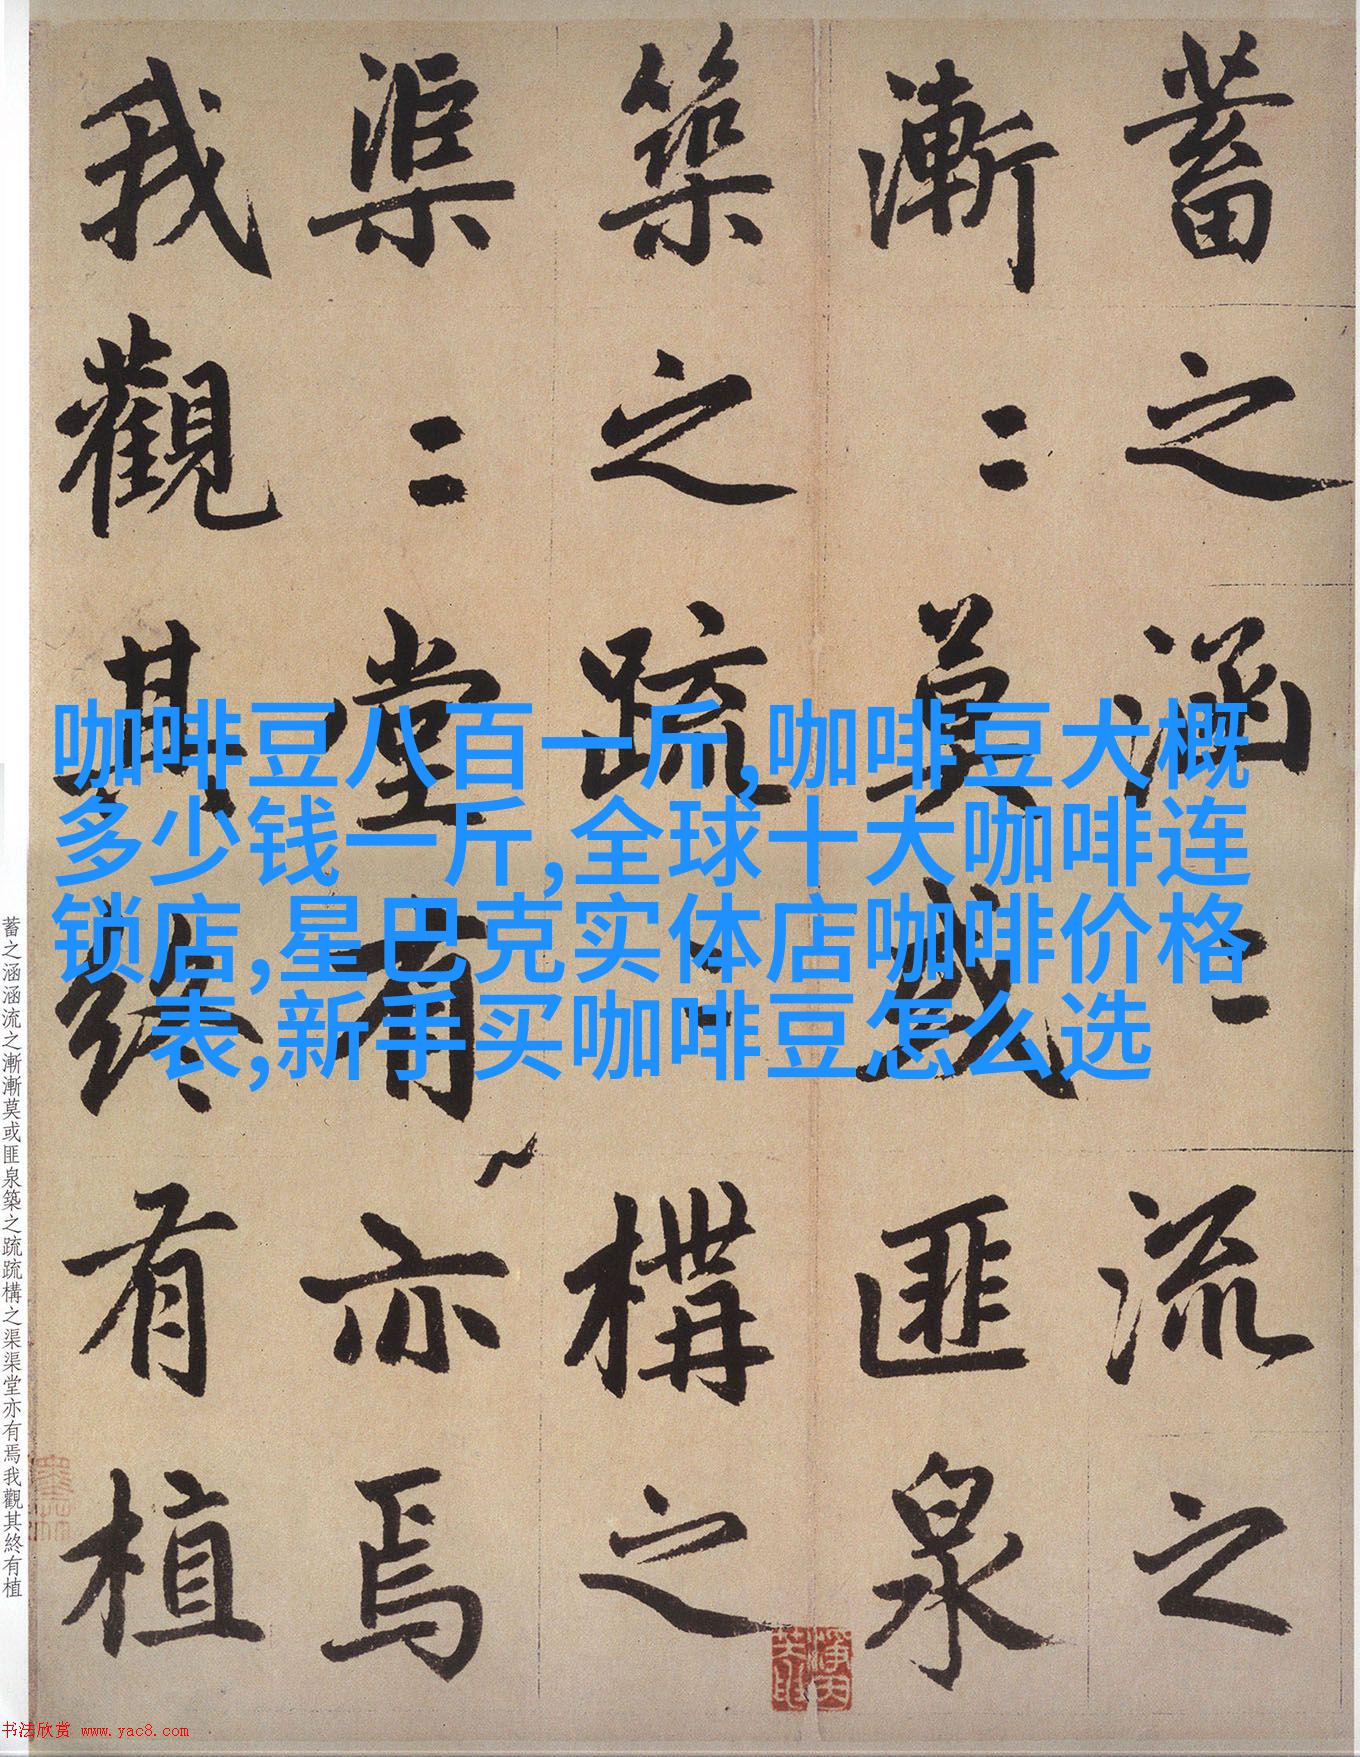 蓄之涵二流之
漸二莫或匪泉
築之疏二構之
渠二堂有亦焉
我觀其終有植
咖啡豆八百一斤,咖啡豆大概
多少钱一斤,全球十大咖啡连
锁店,星巴克实体店咖啡价格
表,新手买咖啡豆怎么选
蓄之涵涵流之漸漸莫或匪泉築之疏疏構之渠渠堂亦有焉我觀其終有植
书法欣赏 www.yac8.com